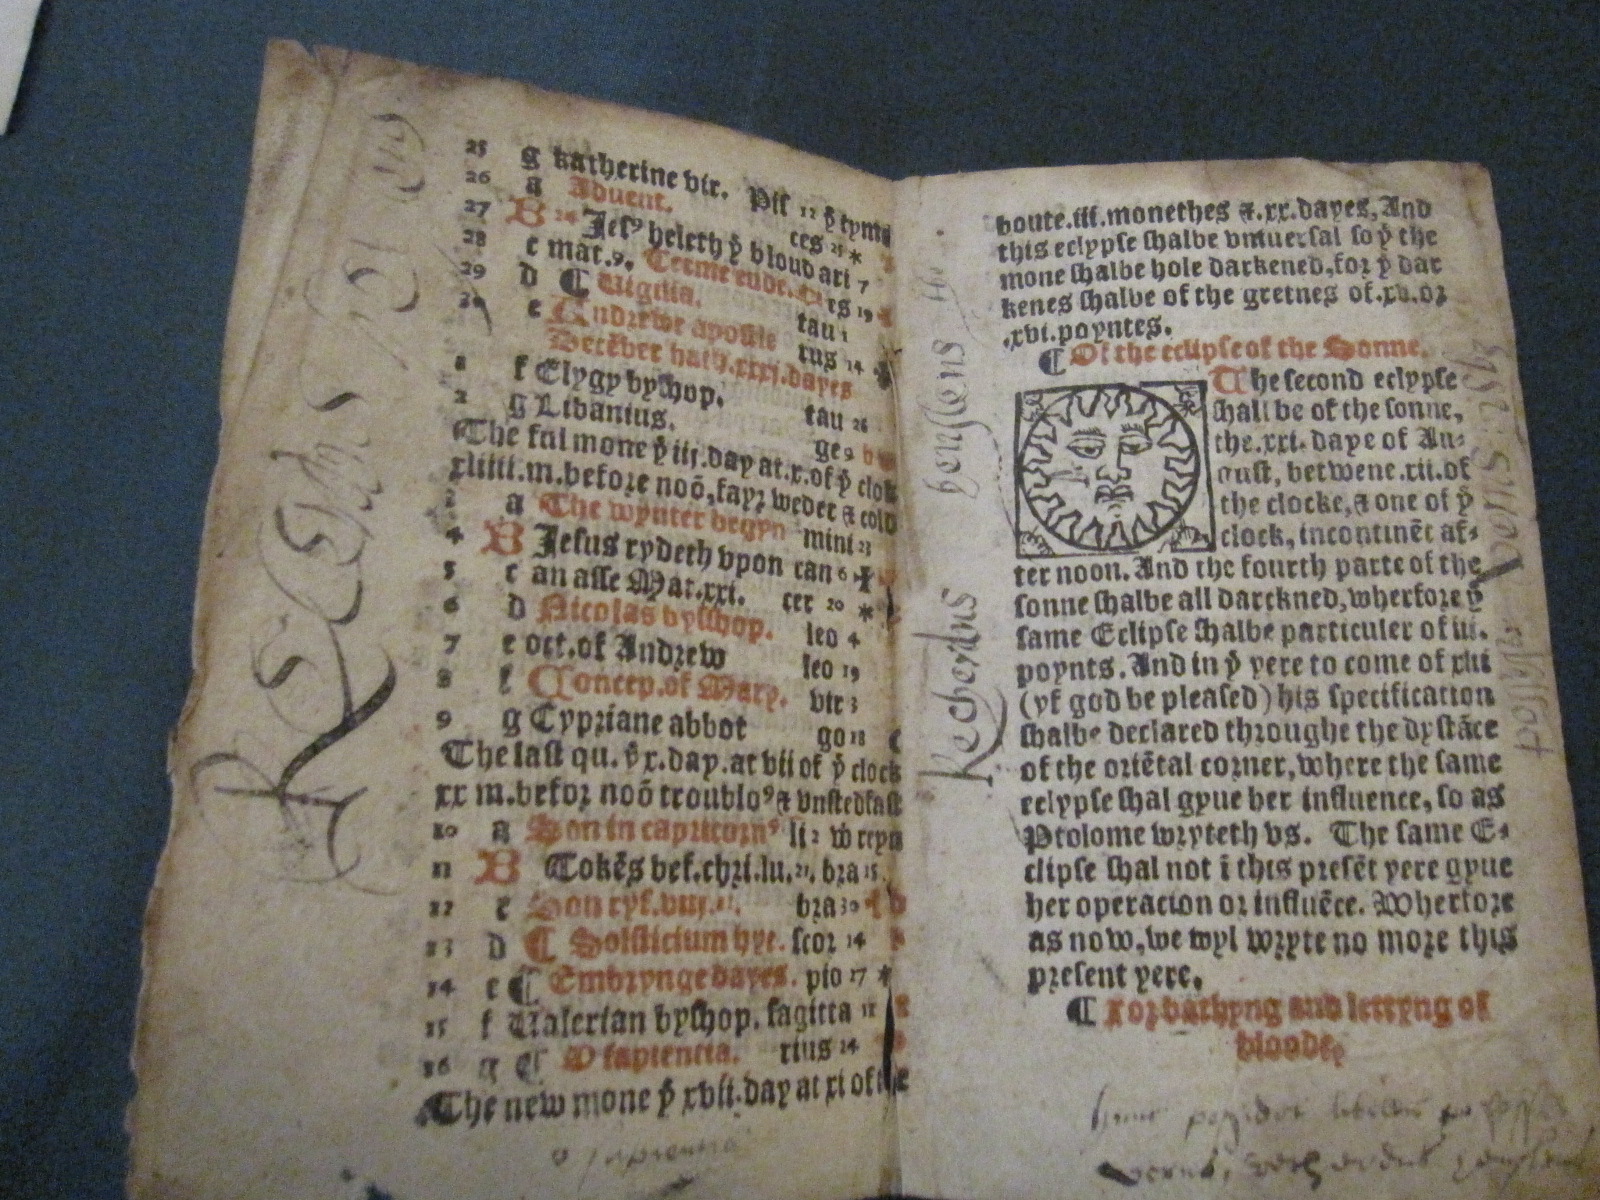 25 g katherine vir. Pis 12 ẏ tymes
26 a Advent. ces 25 *
27 B 24 Jesꝰ heleth ẏ bloud ari 7
28 c mat.9. Terme ende. ri
29 d ¶ Vigilia. tau 1
30 e Andrewe apostle rus 14
Decēber hath.xxxj.dayes
1 f Elygy byshop. tau 26
2 g Libanius. ge 9
The ful mone ẏ iij.day at.x.of ẏ clock
xliiii.m.before noō, fayꝛ weder & cold
3 a The wynter begyn mini 23
4 B Jesus rydeth vpon can 6
5 c an asse Mat.xxi. cer 20 *
6 d Nicolas byshop. leo 4
7 e oct.of Andrew leo 19
8 f Concep.of Mary. vir 3
9 g Cypꝛiane abbot go 18
The last qu. ẏ x.day.at vii of ẏ clock
xx m.befoꝛ noō troubloꝰ & vnstedfast
10 a Son in capꝛicornꝰ li 2
11 B Tokēs bef.chꝛi.lu.21. bꝛa 15
12 c Son bꝛa 30
13 d ¶ Solsticium hye. scoꝛ 14
14 e ¶ Embꝛynge dayes. pio 17 *
15 f Valerian byshop. sagitta
16 g ¶ O sapientia. rius 14
The new mone ẏ xvii.day at xi of the
o sapientia
boute.iii.monethes &.xx.dayes, And
this eclypse shalbe vniuersal so ẏ the
mone shalbe hole darkened, foꝛ ẏ dar
kenes shalbe of the gretnes of.xv.oꝛ
.xvi.poyntes.
¶ Of the eclipse of the Sonne.
The second eclypse
shall be of the sonne,
the.xxi.daye of Au⸗
gust, betwene.xii.of
the clocke, & one of ẏ
clock, incontinēt af⸗
ter noon. And the fourth parte of the
sonne shalbe all darckned, wherfoꝛe ẏ
same Eclipse shalbe particuler of iii.
poynts. And in ẏ yere to come of xliii
(yf god be pleased) his specification
shalbe declared thꝛoughe the dystāce
of the oriētal coꝛner, where the same
eclypse shal gyue her influence, so as
Ptolome wꝛyteth vs. The same E⸗
clipse shal not ī this presēt yere gyue
her operacion oꝛ influēce. Wherfoꝛe
as now, we wyl wꝛyte no moꝛe this
present yere.
¶ Foꝛ bathyng and lettyng of
bloode.